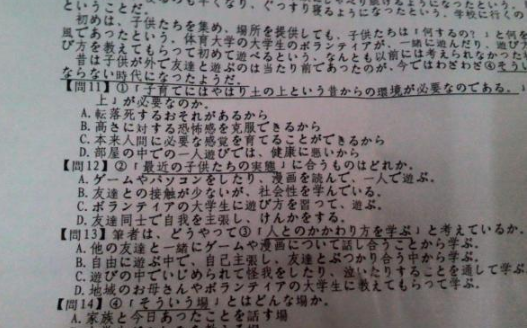 ということだ。
初めは、子供たちを集め、場所を提供しても、子供たちは「何するの?」と何を
風であったという。体育大学の大学生のボランティアが、一緒に遊んだり、遊び
び方を教えてもらって初めて遊べるという、なんとも以前には考えられなかった
昔は子供が外で友達と遊ぶのは当たり前であったのが、今ではわざわざ④そうい
ならない時代になったようだ。
【問11】①「子育てにはやはり土の上という昔からの環境が必要なのである。」
上」が必要なのか。
A.転落死するおそれがあるから
B.高さに対する恐怖感を克服できるから
C.本来人間に必要な感覚を育てることができるから
D.部屋の中での一人遊びでは、健康に悪いから
【問12】②「最近の子供たちの実態」に合うものはどれか。
A.ゲームやパソコンをしたり、漫画を読んで、一人で遊ぶ。
B.友達との接触が少ないが、社会性を学んでいる。
C.ボランティアの大学生に遊び方を習って、遊ぶ。
D.友達同士で自我を主張し、けんかをする。
【問13】筆者は、どうやって③「人とのかかわり方を学ぶ」と考えているか。
A.他の友達と一緒にゲームや漫画について話し合うことから学ぶ。
B.自由に遊ぶ中で、自己主張し、友達とぶつかり合う中から学ぶ。
C.遊びの中でいじめられて怪我をしたり、泣いたりすることを通して学ぶ
D.地域のお母さんやボランティアの大学生に教えてもらって学ぶ。
【問14】④「そういう場」とはどんな場か。
A.家族と今日あったことを話す場